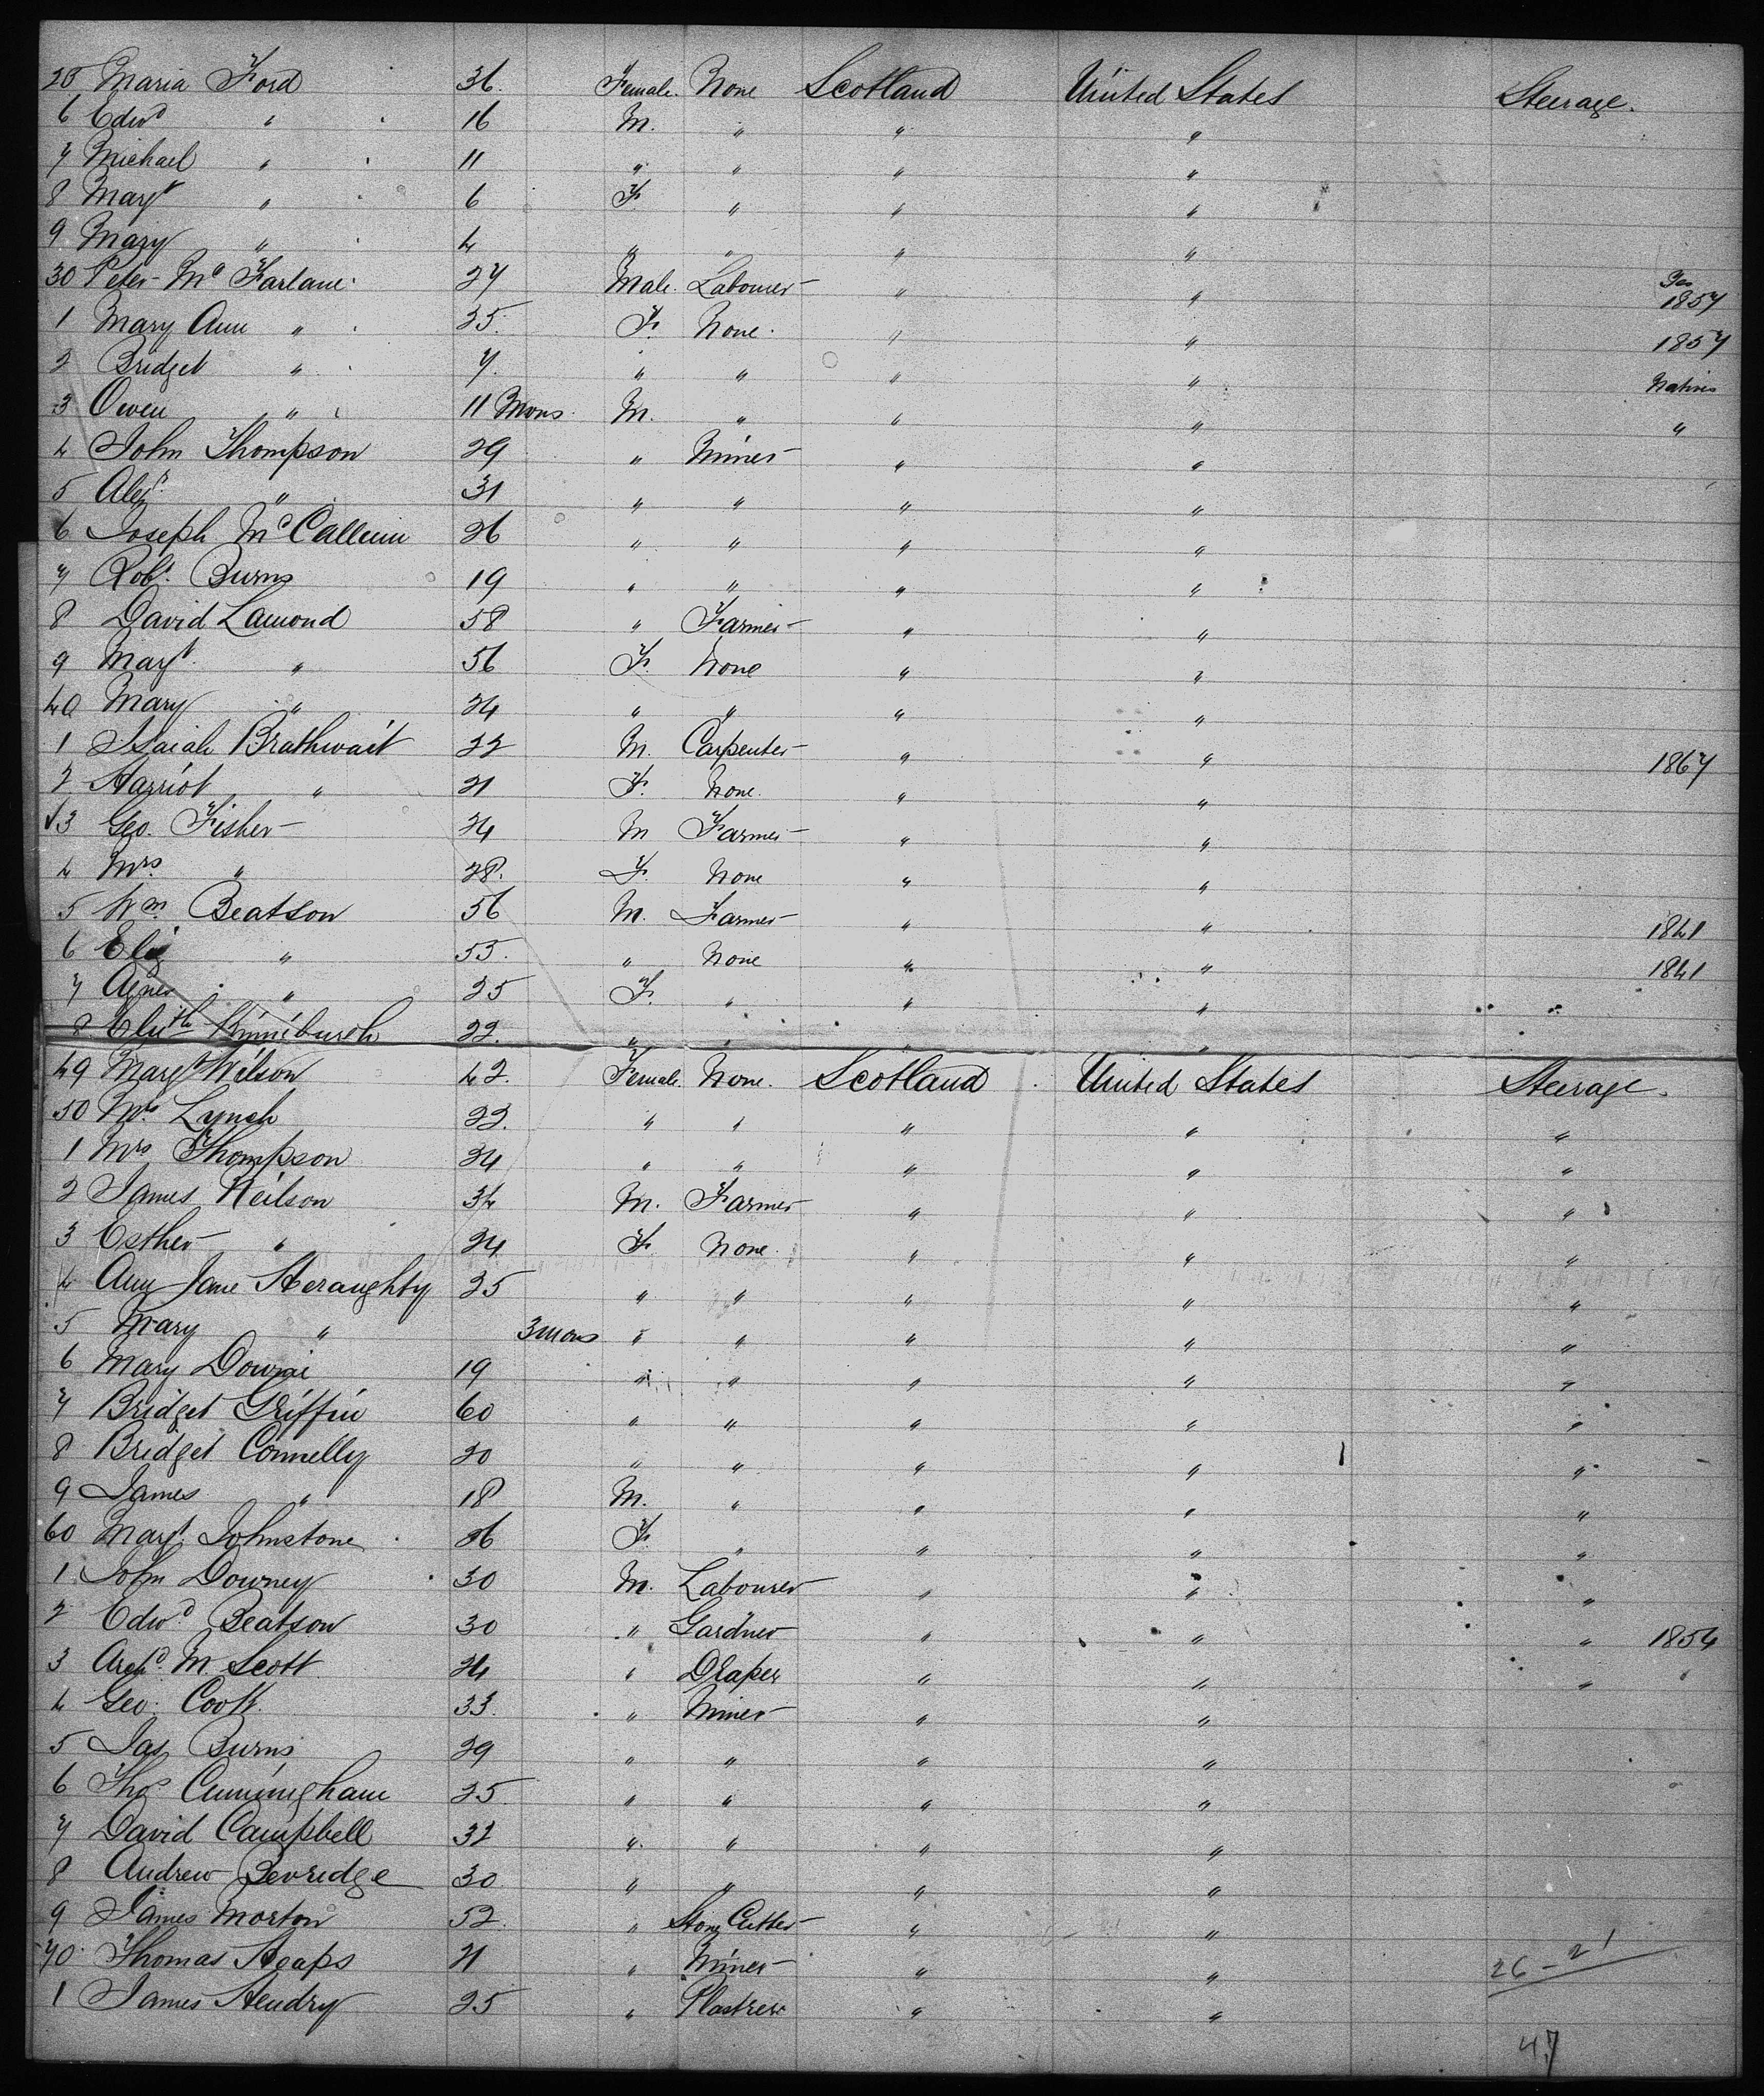 25 Maria Ford 36. Female. None Scotland United States Steerage.
6 Edwd " 16 M. " " "
7 Michael " 11 " " " "
8 Margt " 6 F " " "
9 Mary " 4 " " " "
30 Peter McFarlane 27 Male. Labourer " " 1857
1 Mary Ann " 25. F. None. " " 1857
2 Bridget " 7. " " " " Natives
3 Owen " 11 Mons M. " " " "
4 John Thompson 29 " Miner " "
5 Alexr " 31 " " " "
6 Joseph McCallum 26 " " " "
7 Robt. Burns 19 " " " "
8 David Lamond 58 " Farmer " "
9 Margt. " 56 F. None " "
40 Mary " 24 " " " "
1 Isaiah Brathwait 22 M. Carpenter " " 1867
2 Harriot " 21 F. None. " "
√3 Geo. Fisher 24 M Farmer " "
4 Mrs. " 28. F. None " "
5 Wm. Beatson 56 M. Farmer " " 1841
6 Eliz " 55. " None " " 1841
7 Agnes " 25 F. " " " "
8 Elizth Kinniburgh 22. " " " "
49 Margt Wilson 42. Female. None. Scotland United States Steerage.
50 Mrs. Lynch 22. " " " " "
1 Mrs Thompson 24 " " " " "
2 James Neilson 34 M. Farmer " " "
3 Esther " 24 F None. " " "
4 Ann Jane Heraughty 25 " " " " "
5 Mary " 3 mons " " " " "
6 Mary Downie 19 " " " " "
7 Bridget Griffin 60 " " " " "
8 Bridget Connelly 20 " " " " "
9 James " 18 M. " " " "
60 Margt. Johnstone 26 F. " " " "
1 John Downey 30 M. Labourer " " "
2 Edwd. Beatson 30 " Gardner " " " 1854
3 Archd. M Scott 24 " Draper " " "
4 Geo. Cook 33. " Miner " "
5 Jas Burns 29 " " " "
6 Thos Cunningham 25. " " " "
7 David Campbell 32 " " " "
8 Andrew Bevridge 30 " " " "
9 James Morton 52. " Stone Cutter " "
70 Thomas Heaps 21 " Miner " " 26-21
1 James Hendry 25 " Plastrer " "
47